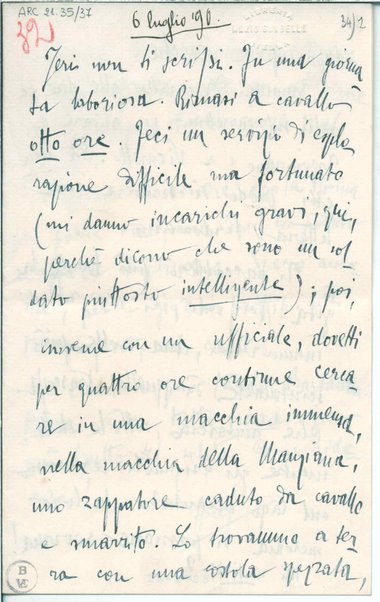 ARC 21.35/37
32
6 luglio '90.
34/1
Ieri non ti scrissi. Fu una giorna
ta laboriosa. Rimasi a cavallo
otto ore. Feci un servizio di esplo
razione difficile ma fortunato
(mi danno incarichi gravi, qui,
perchè dicono che sono un sol
dato piuttosto intelligente); poi,
insieme con un ufficiale, dovetti
per quattro ore continue cerca
re in una macchia immensa,
nella macchia della Manziana,
uno zappatore caduto da cavallo
e smarrito. Lo trovammo a ter
ra con una costola spezzata,
B
VE